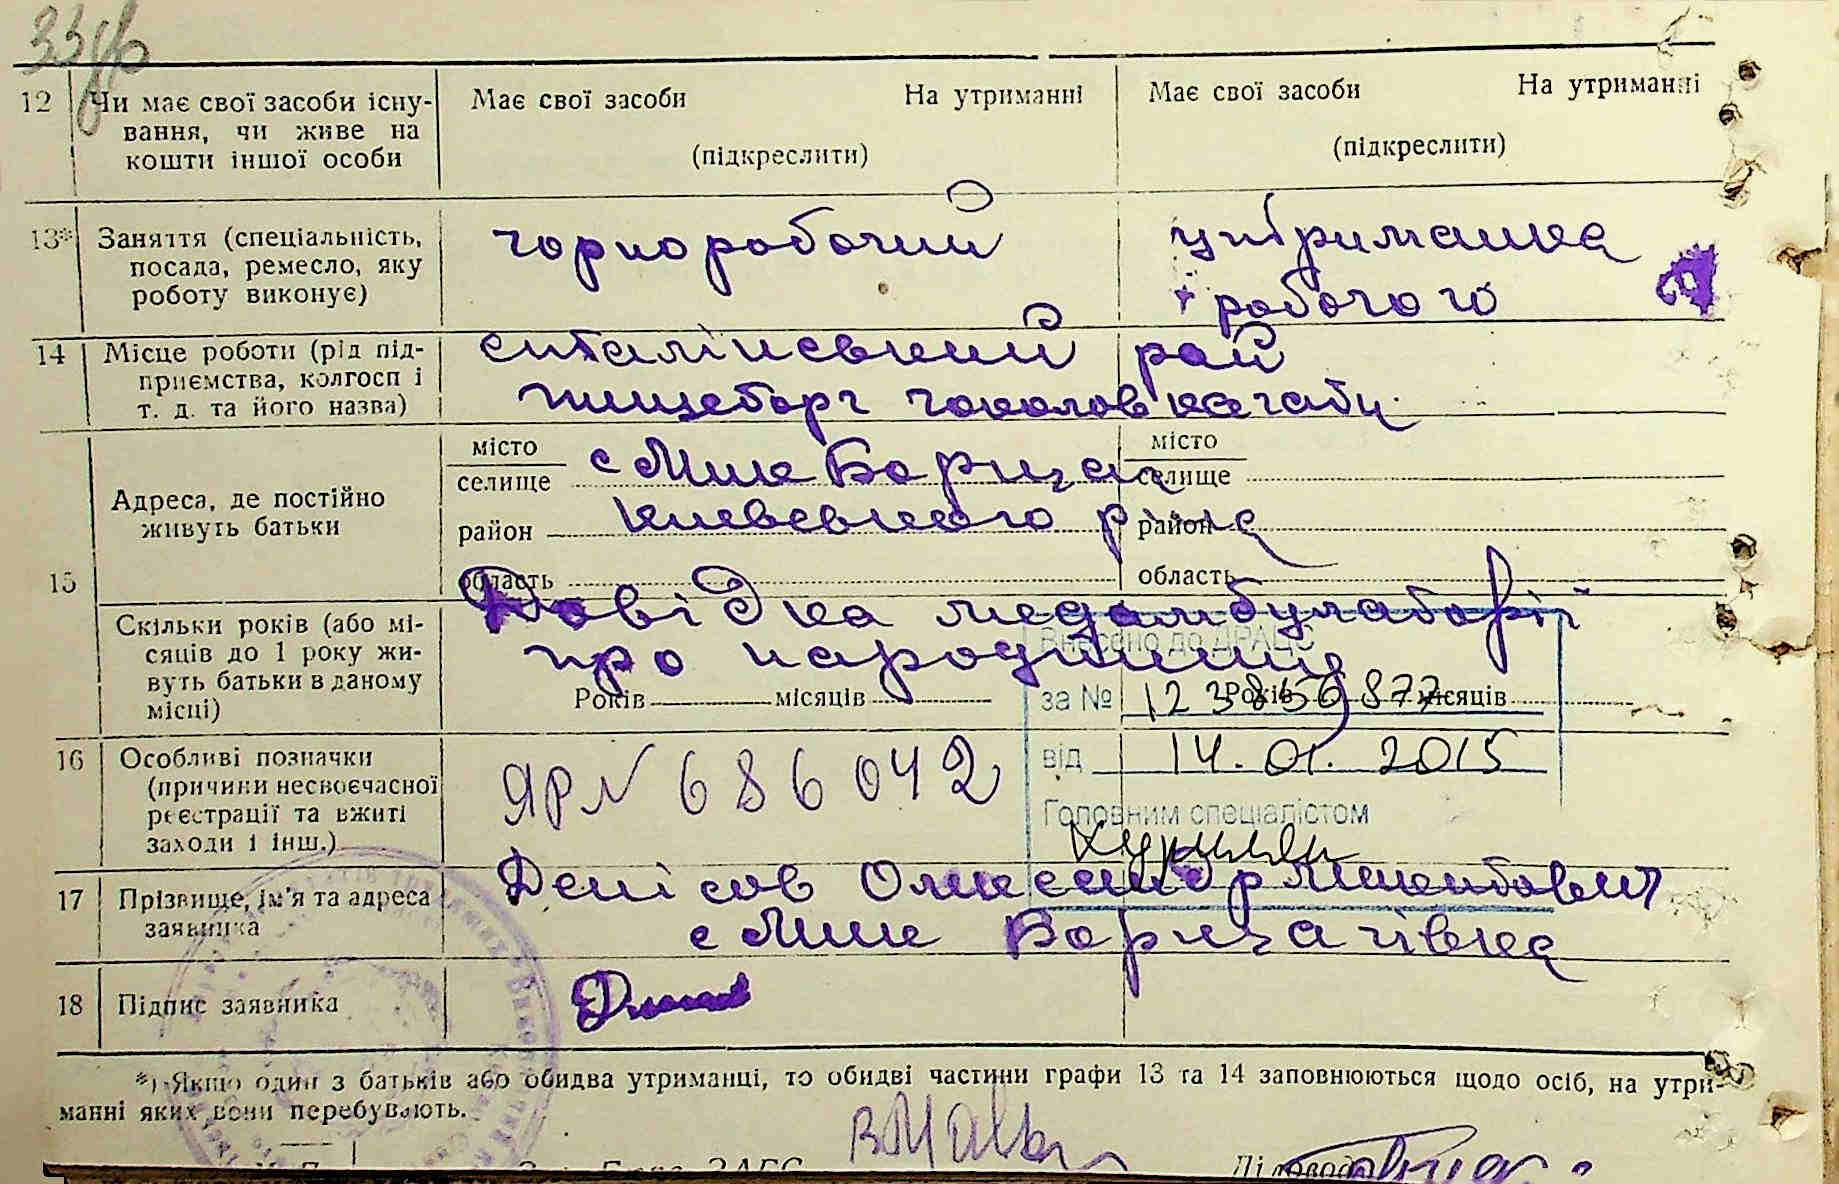 12 Чи має свої засоби існу-
вання, чи живе на
кошти іншої особи
Має свої засоби На утриманні
(підкреслити)
Має свої засоби На утриманні
(підкреслити)
13* Заняття (спеціальність,
посада, ремесло, яку
роботу виконує)
чорноробочий
утриманка
робочого
14 Місце роботи (рід під-
приємства, колгосп і
т. д. та його назва)
сталінський рай
15 Адреса, де постійно
живуть батьки
місто
селище
с Мик Борщаг
район Киевського р-на
область
місто
селище
район
область
Скільки років (або мі-
сяців до 1 року жи-
вуть батьки в даному
місці)
Довідка медамбулаторії
про народження
Років місяців
Років місяців
Внесено до ДРАЦС
за № 123856877
від 14.01.2015
Головним спеціалістом
16 Особливі позначки
(причини несвоєчасної
реєстрації та вжиті
заходи і інш.)
ЯР № 686042
17 Прізвище, ім'я та адреса
заявника
Денісов Олександр
с Мик Борщагівка
18 Підпис заявника
*) Якщо один з батьків або обидва утриманці, то обидві частини графи 13 та 14 заповнюються щодо осіб, на утри-
манні яких вони перебувають.
Діловод